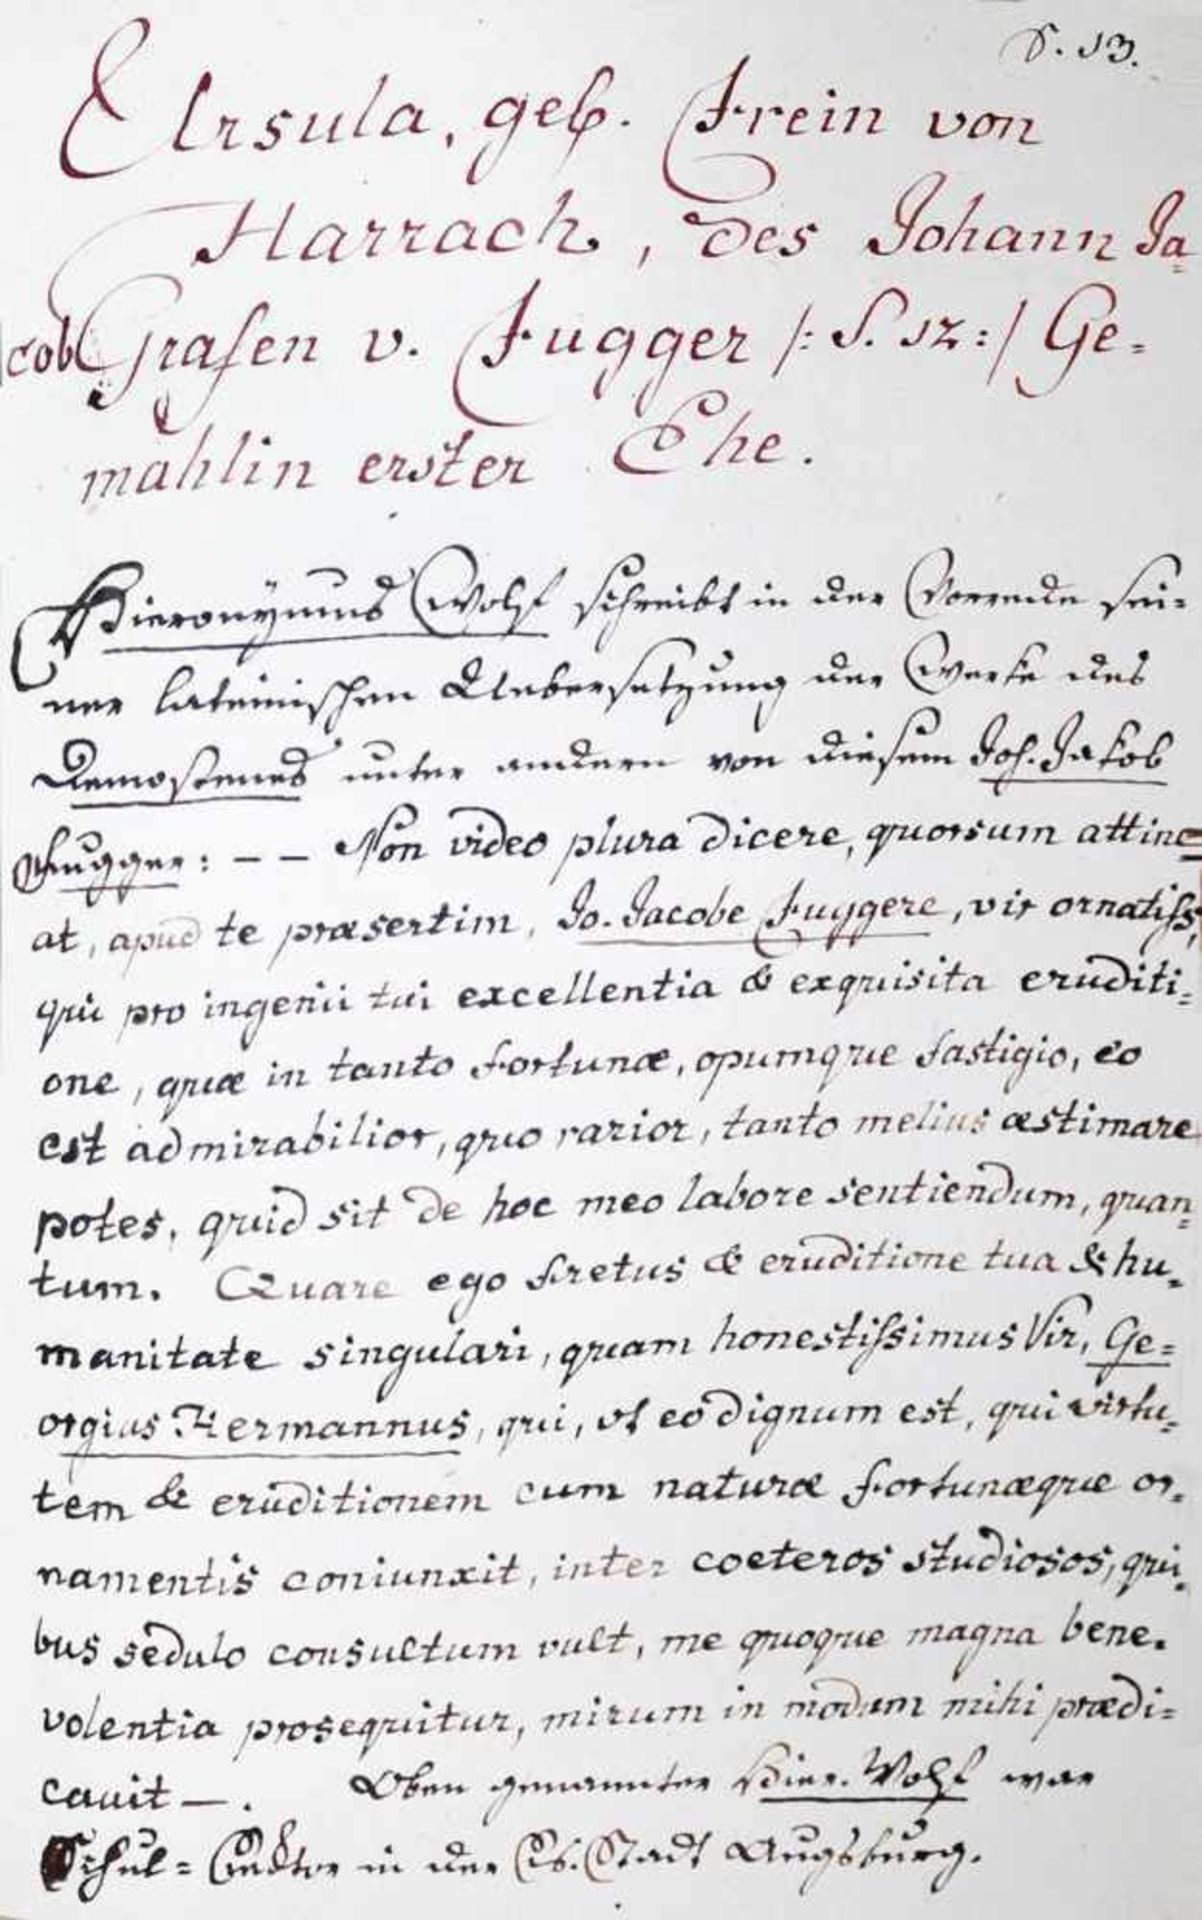 S. 13.
Ursula, geb. Frein von
Harrach, des Johann Ja=
cob Grafen v. Fugger /: S. 12 :/ Ge=
mahlin erster Ehe.
Hieronÿmus Wolf schreibt in der Vorrede sei=
ner lateinischen Uebersetzung der Werke des
Demostenes unter andern von diesem Joh. Jakob
Fugger: — — Non video plura dicere, quorsum attine=
at, apud te præsertim, Jo. Jacobe Fuggere, vir ornatiss,
qui pro ingenii tui excellentia & exquisita eruditi=
one, quæ in tanto fortunæ, opumque fastigio, eo
est admirabilior, quo rarior, tanto melius æstimare
potes, quid sit de hoc meo labore sentiendum, quan=
tum. Quare ego fretus & eruditione tua & hu=
manitate singulari, quam honestissimus Vir, Ge=
orgius Hermannus, qui, ut eo dignum est, qui virtu=
tem & eruditionem cum naturæ fortunæque or=
namentis coniunxit, inter coeteros studiosos, qui=
bus sedulo consultum vult, me quoque magna bene=
volentia prosequitur, mirum in modum mihi prædi=
cauit —. Oben genannter Hier. Wolf war
Schul= Rector in der Rs. Stadt Augsburg.